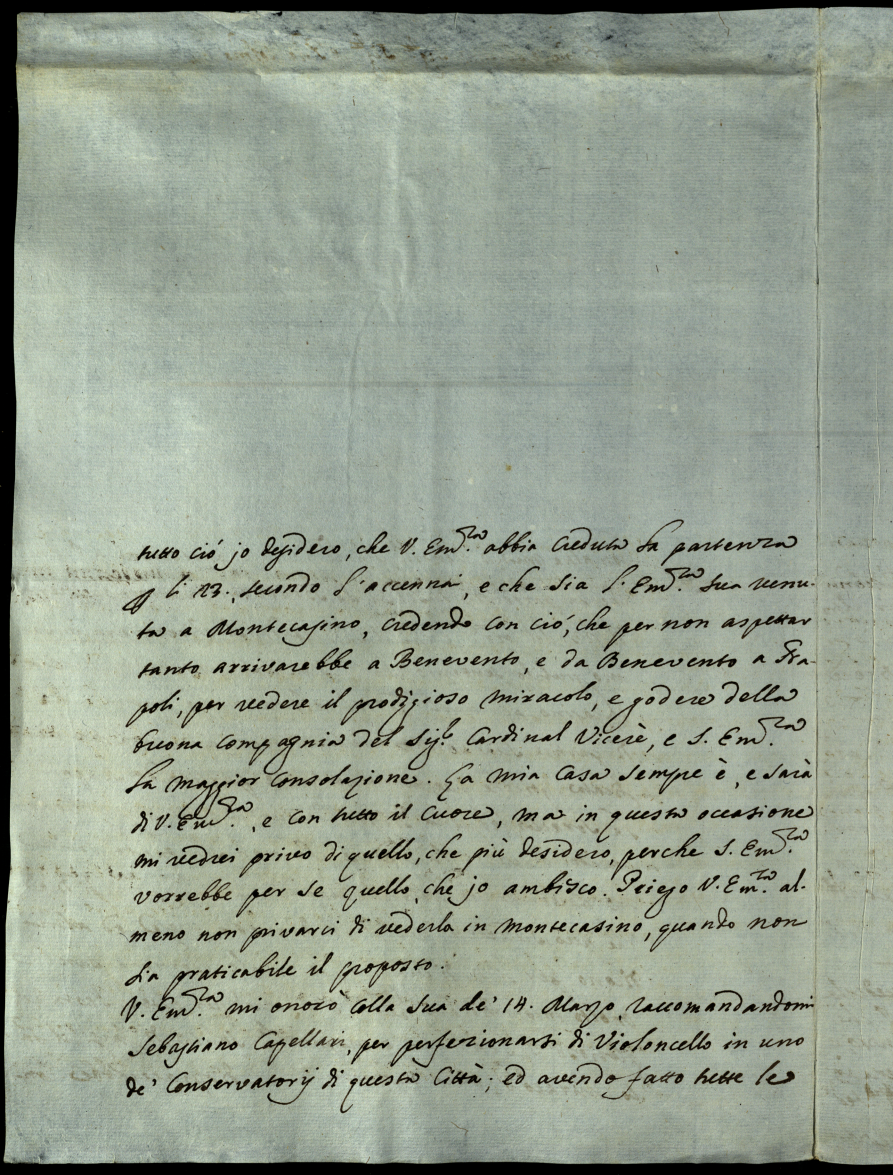 tutto ciò jo desidero, che V. Em.za abbia creduta la partenza
li 23., secondo l'accennai, e che sia l'Em.za Sua venu-
ta a Montecasino, credendo con ciò, che per non aspettar
tanto arrivarebbe a Benevento, e da Benevento a Na-
poli, per vedere il prodigioso miracolo, e godere della
buona compagnia del Sig.r Cardinal Vicerè, e S. Em.za
la maggior consolazione. La mia casa sempre è, e sarà
di V. Em.za, e con tutto il cuore, ma in questa occasione
mi vedrei privo di quello, che più desidero, perche S. Em.za
vorrebbe per se quello, che jo ambisco. Priego V. Em.za al-
meno non privarci di vederla in Montecasino, quando non
sia praticabile il proposto.
V. Em.za mi onorò colla Sua de' 14. Marzo, raccomandandomi
Sebastiano Capellari, per perfezionarsi di Violoncello in uno
de' Conservatorij di questa Città; ed avendo fatto tutte le